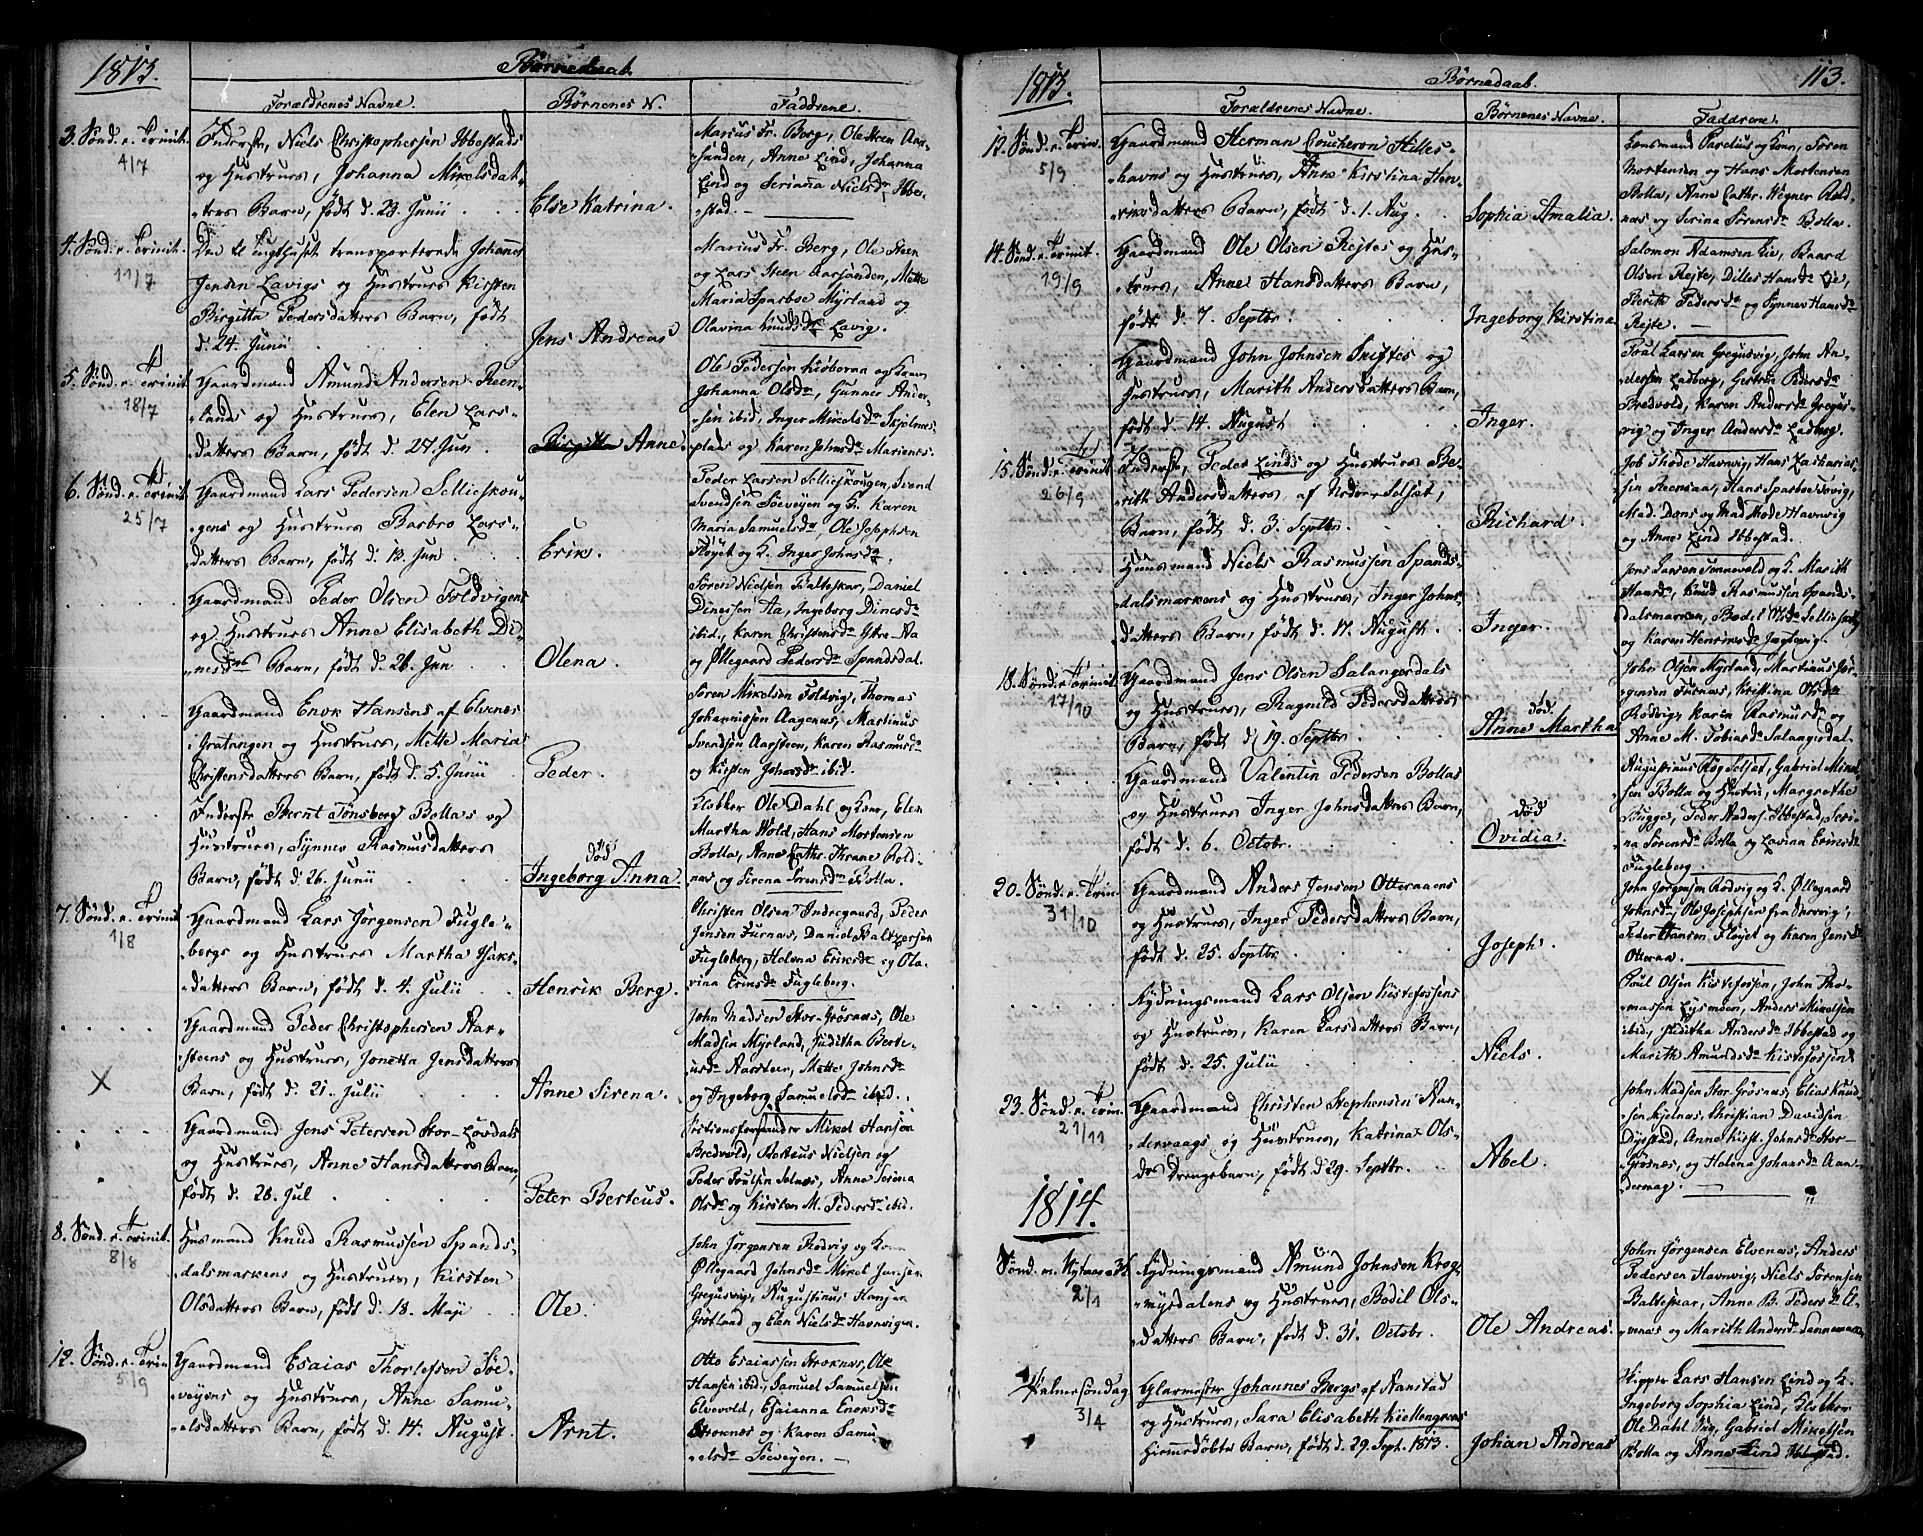 1813.
Børnedaab.
Forældrenes Navne.
Børnenes N.
Faddrene.
3. Sønd. e. Trinit.
4/7
Inderste, Niels Christophersen Ibbestads
og Hustrues, Johanna Mikelsdat-
ters Barn, født d. 23. Junii
Else Katrina.
Marius Fr. Berg, Ole Steen Aar-
sanden, Anne Lind, Johanna
Lind og Seriana Nielsdr. Ibbe-
stad.
4. Sønd. e. Trinit.
11/7
Den til Tugthuset transporterede Johannes
Jensen Lavigs og Hustrues Kirsten
Birgitta Pedersdatters Barn, født
d. 24. Junii
Jens Andreas
Marius Fr. Berg, Ole Steen
og Lars Steen Aarsanden, Mette
Maria Sparboe Myrland og
Olavina Knudsdr. Lavig.
5. Sønd. e. Trinit.
18/7
Gaardmand Amund Andersen Reen-
lands og Hustrues, Elen Lars-
datters Barn, født d. 27. Jun
Birgitta Anne.
Ole Pedersen Kioboraa og Kone
Johanna Olsdr., Gunner Ander-
sen ibid, Inger Mikelsdr. Skjelnes-
plads og Karen Johnsdr. Marienes.
6. Sønd. e. Trinit.
25/7
Gaardmand Lars Pedersen Sellieskou-
gens og Hustrues Barbro Lars-
datters Barn, født d. 13. Jun
Erik.
Peder Larsen Sellieskougen, Svend
Svendsen Soeveyen og K. Karen
Maria Samuelsdr., Ole Josephsen
Fløyet og K. Inger Johnsdr.
Gaardmand Peder Olsen Foldvigens
og Hustrues Anne Elisabeth Di-
nesdrs Barn, født d. 26. Jun
Olena.
Søren Nielsen Balteskar, Daniel
Dinesen Aa, Ingeborg Dinesdr.
ibid., Karen Christensdr. Ytre-Aa
og Øllegaard Pedersdr. Spandsdal.
Gaardmand Enok Hansens af Elvenes
Gratangen og Hustrues, Mette Maria
Christensdatters Barn, født d. 5. Junii
Peder.
Søren Mikelsen Foldvig, Thomas
Johannissen Aagenæs, Martinus
Svendsen Aarsteen, Karen Rasmusdr.
og Kirsten Johansdr. ibid.
Inderste Bernt Tønsberg Bollas og
Hustrues, Synnev Rasmusdatters
Barn, født d. 26. Junii
død
Ingeborg Anna.
Klokker Ole Dahl og Kone, Elen
Martha Wold, Hans Mortensen
Bolla, Anne Cathr. Krane Rold-
næs og Sirena Sørensdr. Bolla.
7. Sønd. e. Trinit
1/8
Gaardmand Lars Jørgensen Fugle-
bergs og Hustrues Martha Isaks-
datters Barn, født d. 4. Julii
Henrik Berg.
Christen Olsen Indregaard, Peder
Jensen Furnæs, Daniel Baltzersen
Fugleberg, Helena Eriksdr. og Ola-
vina Eriksdr. Fugleberg.
Gaardmand Peder Christophersen Aar-
steens og Hustrues, Jonetta Jensdatters
X
Barn, født d. 21. Julii
Anne Sirena.
John Madsen Stor-Grøsnæs, Ole
Madsen Myrland, Juditha Berte-
usdr. Aarsteen, Mette Johnsdr.
og Ingeborg Samuelsdr. ibid.
Gaardmand Jens Petersen Stor-Løvdals
og Hustrues, Anne Hansdatters Barn,
født d. 28. Jul
Peter Berteus.
Mikel Hansen
Bredvold, Berteus Nielsen og
Peder Poulsen Selnæs, Anne Serina
Olsdr. og Kirsten M. Pedersdr. ibid.
8. Sønd. e. Trinit.
8/8
Husmand Knud Rasmussen Spands-
dalsmarkens og Hustrues, Kirsten
Olsdatters Barn, født d. 18. Maji
Ole.
John Jørgensen Rødvig og Kone
Øllegaard Johnsdr. Mikel Jensen
Gregusvig, Augustinus Hansen
Grøtland og Elen Nielsdr. Havnvigen.
12. Sønd. e. Trin
5/9
Gaardmand Esaias Thorlefsen Søe-
veyens og Hustrues, Anne Samu-
elsdatters Barn, født d. 14. August.
Arnt.
Otto Esaiassen Stroknæs, Ole
Hansen ibid., Samuel Samuelsen
Elvevold, Esaianna Enoksdr.
Stroknes og Karen Samu-
elsdr. Soeveyen.
1813.
Børnedaab.
113.
Forældrenes Navne.
Børnenes Navne.
Faddrene.
12. Sønd. e. Trin.
5/9
Gaardmand Herman Coucheron Hilles-
havns og Hustrues, Anne Kirstina Hen-
riksdatters Barn, født d. 1. Aug.
Sophia Amalia.
Lensmand Parelius og Kone, Søren
Mortensen og Hans Mortensen
Bolla, Anne Cathr. Wegner Rold-
næs og Serina Sørensdr. Bolla.
14. Sønd. e. Trinit.
19/9
Gaardmand Ole Olsen Røjtes og Hus-
trues, Anne Hansdatters Barn,
født d. 7. Septbr.
Ingeborg Kirstina.
Salomon Adamsen Lie, Baard
Olsen Røjte, Dilles Hansdr. Lie,
Berith Pedersdr. og Synnev Hansdr.
Røjte.
Gaardmand John Johnsen Luftes og
Hustrues, Marith Andersdatters Barn,
født d. 14. August
Inger.
Poul Larsen Gregusvig, John An-
dersen Ladberg, Gertrue Pedersdr.
Bredvold, Karen Andersdr. Gregus-
vig og Inger Andersdr. Ladberg.
15. Sønd. e. Trinit
26/9
Inderste, Peder Linds og Hustrues Be-
rith Andersdatters af Nedre-Selset,
Barn, født d. 3. Septbr.
Richard.
Job Thode Havnvig, Hans Zacharias-
sen Reensaa, Hans Sparboe Tovvig,
Mad. Dons og Mad Thode Havnvig
og Anne Lind Ibbestad.
Huusmand Niels Rasmussen Spands-
dalsmarkens og Hustrues, Inger Johns-
datters Barn, født d. 17. August.
Inger.
Jens Larsen Sønnevold og K. Marith
Hansdr., Knud Rasmussen Spands-
dalsmarken, Bodel Olsdr.
og Karen Henriksdr. Jægtevig.
18. Sønd. e. Trinit
17/10
Gaardmand Jens Olsen Salangsdals
og Hustrues, Ragnild Pedersdatters
Barn, født d. 19. Septbr.
død.
Anne Martha
John Olsen Myrland, Martinus Jør-
gensen Furnæs, Kristina Olsdr.
Rødvig, Karen Rasmusdr. og
Anne M. Tobiasdr. Salangsdal.
Gaardmand Valentin Pedersen Bollas
og Hustrues Inger Johnsdatters Barn,
født d. 6. Octobr.
død
Ovidia.
Augustinus Røg Selset, Gabriel Mikel-
sen Bolla og Hustru, Margrethe
Bugge, Peder Anders. Ibbestad, Seri-
na Sørensdr. Bolla og Lavina Eriksdr.
Fugleberg.
20. Sønd. e. Trin.
31/10
Gaardmand Anders Jensen Otteraaens
og Hustrues, Inger Pedersdatters Barn,
født d. 25. Septbr.
Joseph.
John Jørgensen Rødvig og K. Øllegaard
Johnsdr., Ole Josephsen fra Skovvig,
Peder Hansen Fløyet og Karen Jensdr.
Otteraa.
Rydningsmand Lars Olsen Kistefossens
og Hustrues, Karen Larsdatters Barn,
født d. 25. Julii
Niels.
Poul Olsen Kistefossen, John Tho-
massen Lysmoen, Anders Mikelsen
ibid, Juditha Andersdr. Ibbestad og
Marith Amundsdr. Kistefossen
23. Sønd. e. Trin.
21/11
Gaardmand Christen Stephensen Aan-
dervaags og Hustrues, Katrina Ols-
drs Drengebarn, født d. 29. Septbr.
Abel.
John Madsen Stor-Grøsnæs, Elias Knud-
sen Kjelnæs, Christian Davidsen
Dyrstad, Anne Kirst. Johnsdr. Stor-
Grøsnæs, og Helena Johansdr. Aan-
dervaag.
1814.
Sønd. m. Nytaar
2/1
Rydningsmand Amund Johnsen Krog-
myrdalens og Hustrues, Bodil Ols-
datters Barn, født d. 31. Octobr.
Ole Andreas.
John Jørgensen Elvenæs, Anders
Pedersen Havnvig, Niels Sørensen
Balteskar, Anne B. Pedersdr. El-
venæs og Marith Andersdr.
Palmesøndag
3/4
Glarmester Johannes Bergs af Aanstad
og Hustrues, Sara Elisabeth Kiellengrens
Hiemmedøbte Barn, født d. 29. Sept. 1813.
Johan Andreas
Skipper Lars Hansen Lind og K.
Ingeborg Sophia Lind, Klokker
Ole Dahl, Gabriel Mikelsen
Bolla og Anne Lind Ibbestad.